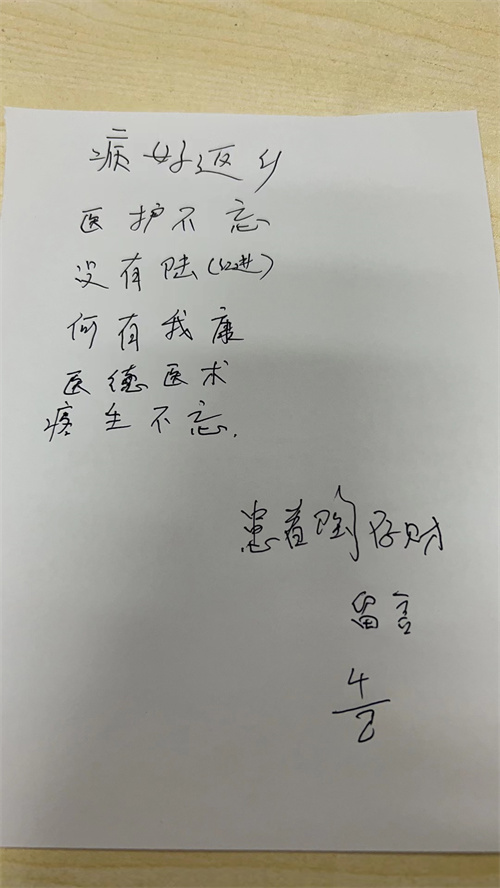 病好返乡
医护不忘
没有陆(红进)
何有我康
医德医术
疼生不忘.
患者陶存财
留言
4
8